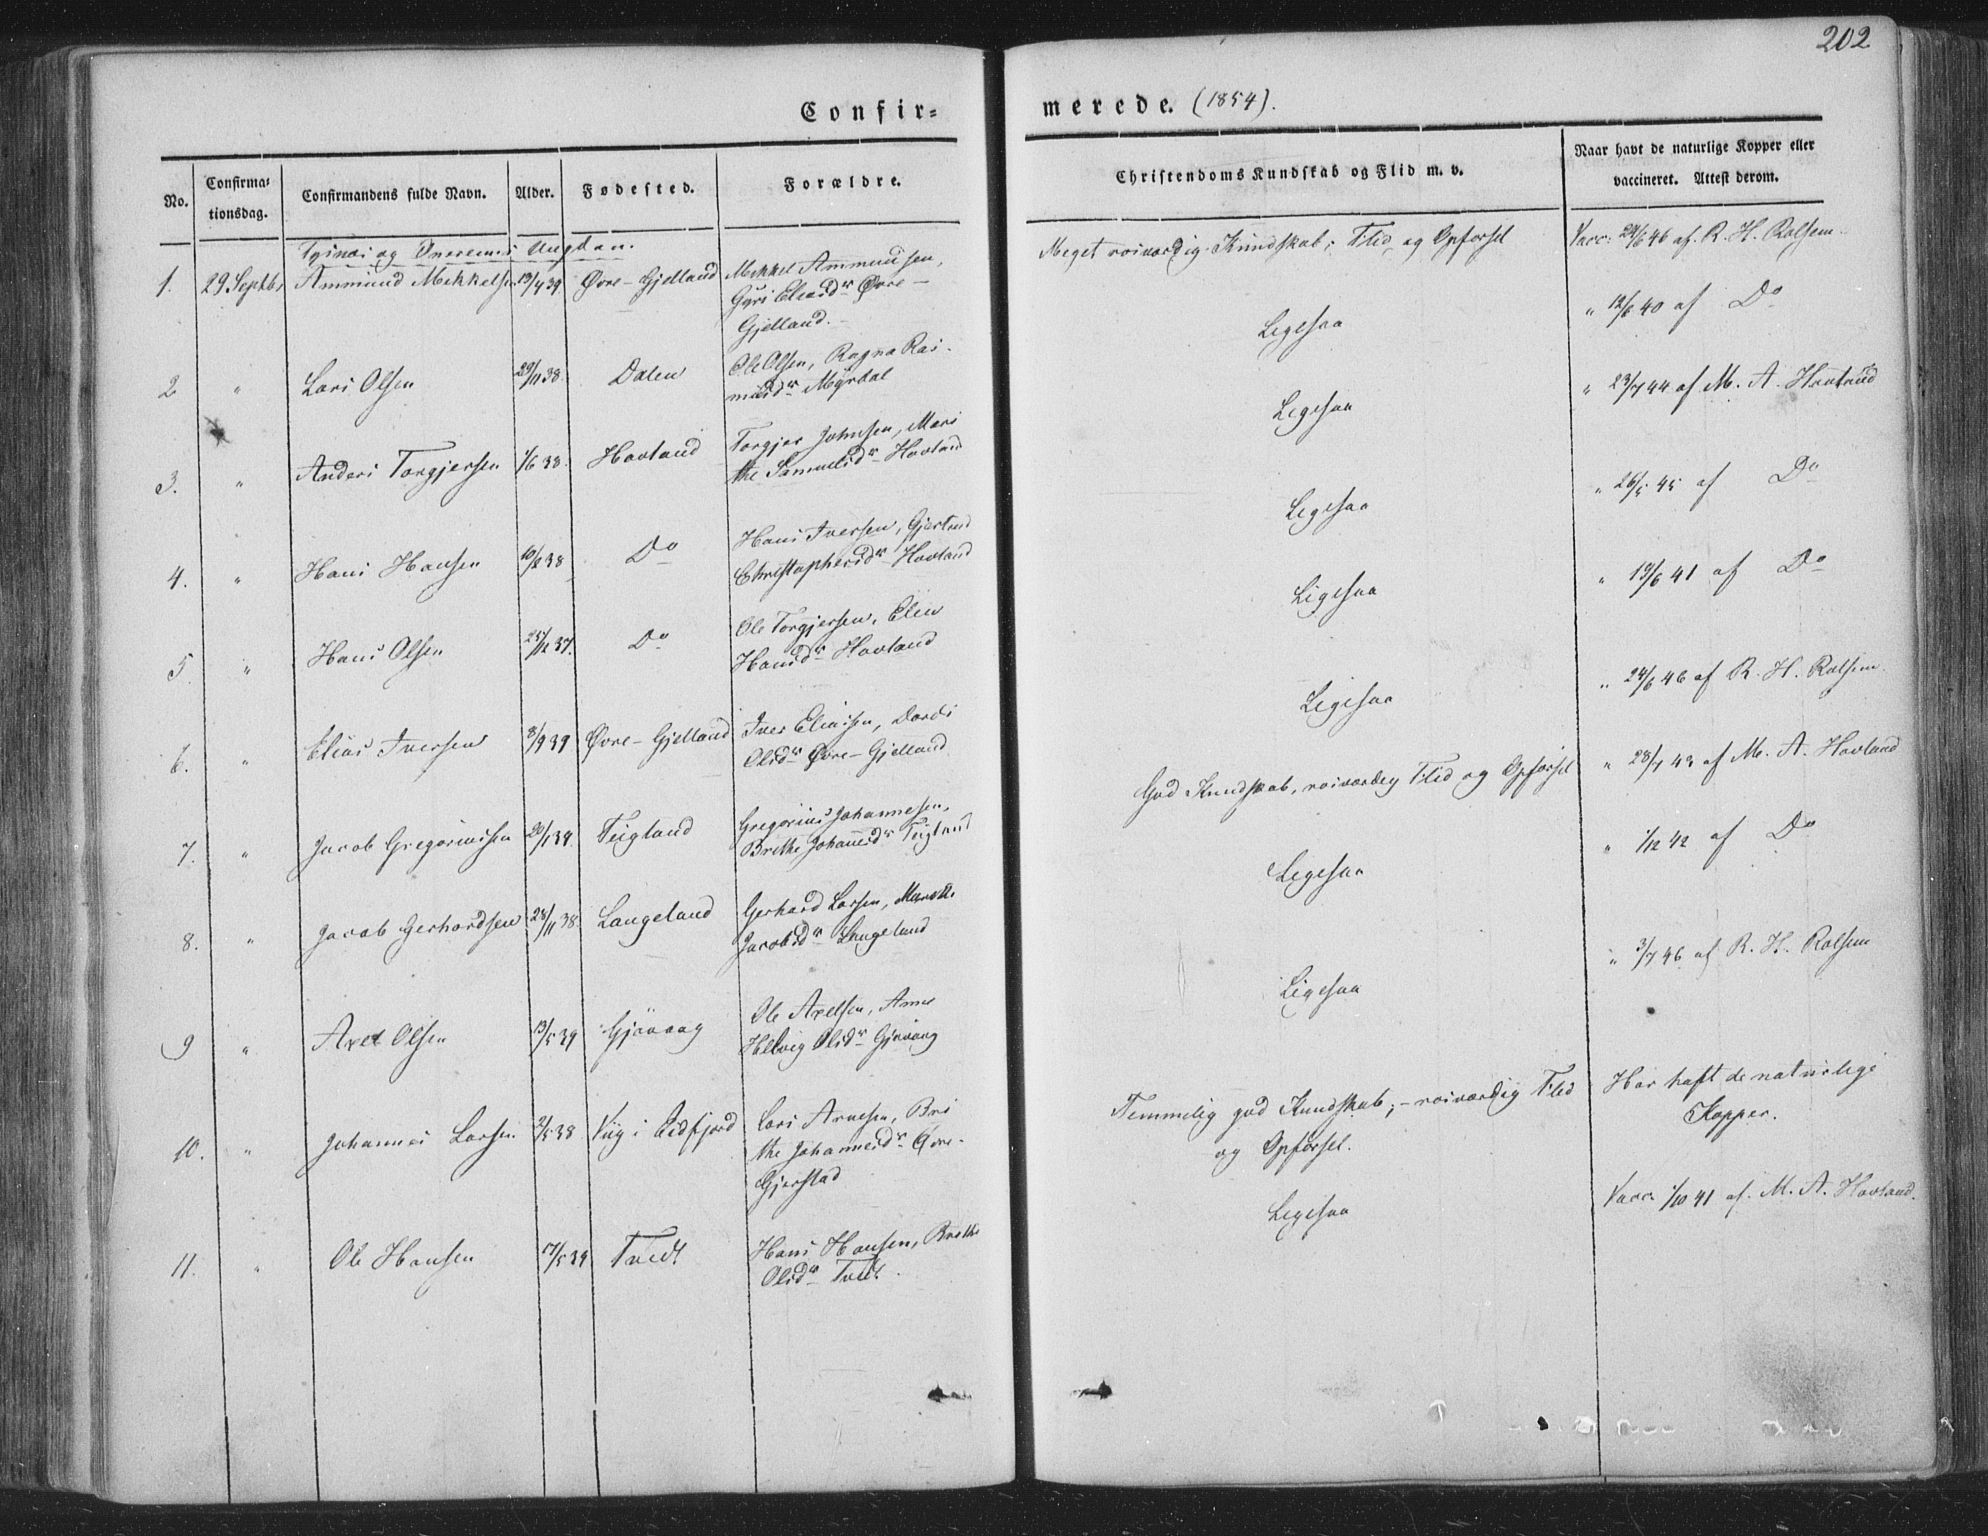 202
Confir=
merede. (1854).
No.
Confirma=
tionsdag.
Confirmandens fulde Navn.
Alder.
Fødested.
Forældre.
Christendoms Kundskab og Flid m. v.
Naar havt de naturlige Kopper eller
vaccineret. Attest derom.
og Ungdom.
1. 29 Septbr Ammund Mekkelsen 13/4 39 Øvre-Gjelland Mekkel Ammundsen,
Gyri Eliasdr Øvre-
Gjelland.
Meget roisværdig Kundskab, Flid og Opførsel
Vacc. 24/6 46 af R. H. Rolsem.
2 " Lars Olsen 29/11 38. Dalen Ole Olsen, Ragna Ras-
musdr Myrdal
Ligesaa
" 12/6 40 af Do
3. " Anders Torgjersen 1/6 38. Hovland Torgjer Johnsen, Mari
the Samuelsdr Hovland
Ligesaa
" 23/7 44 af M. A. Hovland
4. " Hans Hansen 10/2 38 Do Hans Iversen, Gjertrud
Christophersdr Hovland
Ligesaa
" 26/5 45 af Do
5. " Hans Olsen 25/12 37. Do Ole Torgjersen, Elen
Hansdr Hovland
Ligesaa
" 19/6 41 af Do
6. " Elias Iversen 8/9 39 Øvre-Gjelland Iver Eliassen, Dordi
Olsdr Øvre-Gjelland
Ligesaa
" 24/6 46 af R. H. Rolsem.
7. " Jacob Gregoriussen 20/1 39. Teigland Gregorius Johannesen,
Brithe Johannesdr Teigland
God Kundskab, roisværdig Flid og Opførsel
" 28/7 43 af M. A. Hovland
8. " Jacob Gerhardsen 28/11 38. Langeland Gerhard Larsen, Marethe
Jacobsdr Langeland
Ligesaa
" 1/12 42 af Do
9 " Axel Olsen 13/5 39 Gjøvaag Ole Axelsen, Anne
Helvig Olsdr Gjøvaag
Ligesaa
" 3/7 46 af R. H. Rolsem
10. " Johannes Larsen 2/5 38 Viig i Eidfjord Lars Arnesen, Bri
the Johannesdr Øvre-
Gjerstad
Temmelig god Kundskab; - roisværdig Flid
og Opførsel.
Har haft de naturlige
Kopper.
11. " Ole Hansen 17/5 39 Tvedt Hans Hansen, Brithe
Olsdr Tvedt.
Ligesaa
Vacc. 1/10 41 af M. A. Hovland.